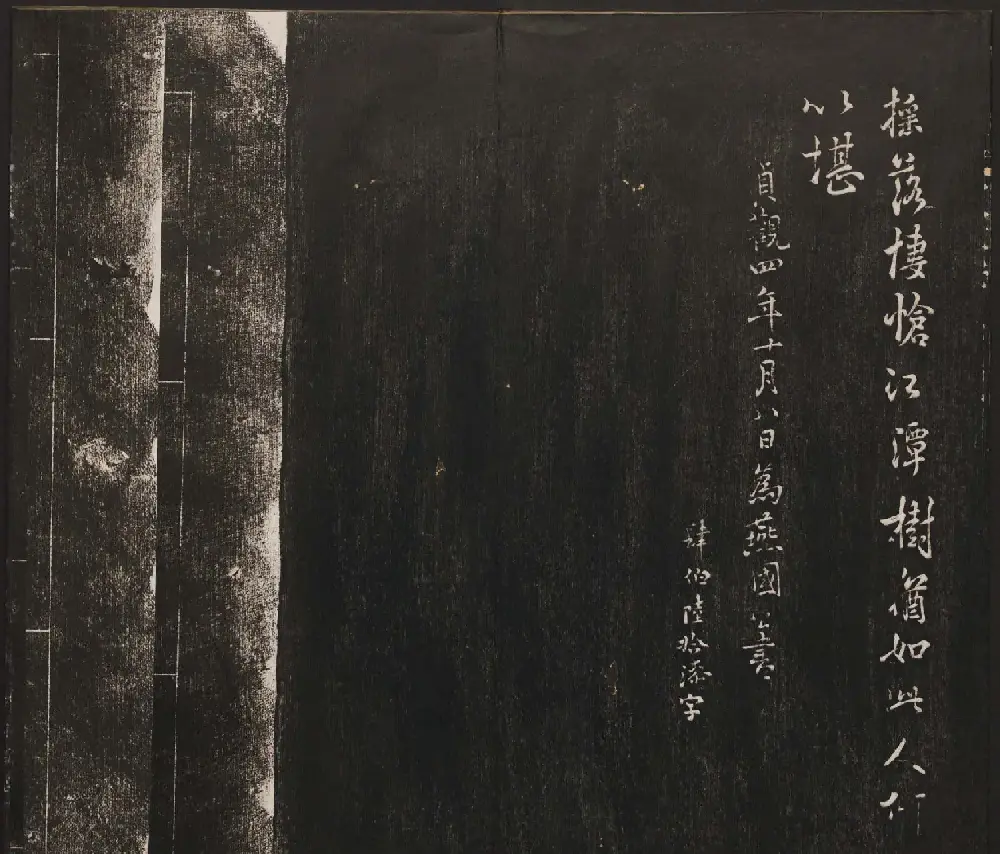 搖落悽愴江潭樹猶如此人何
以堪
貞觀四年十月八日為燕國公書
肆伯陸拾漆字